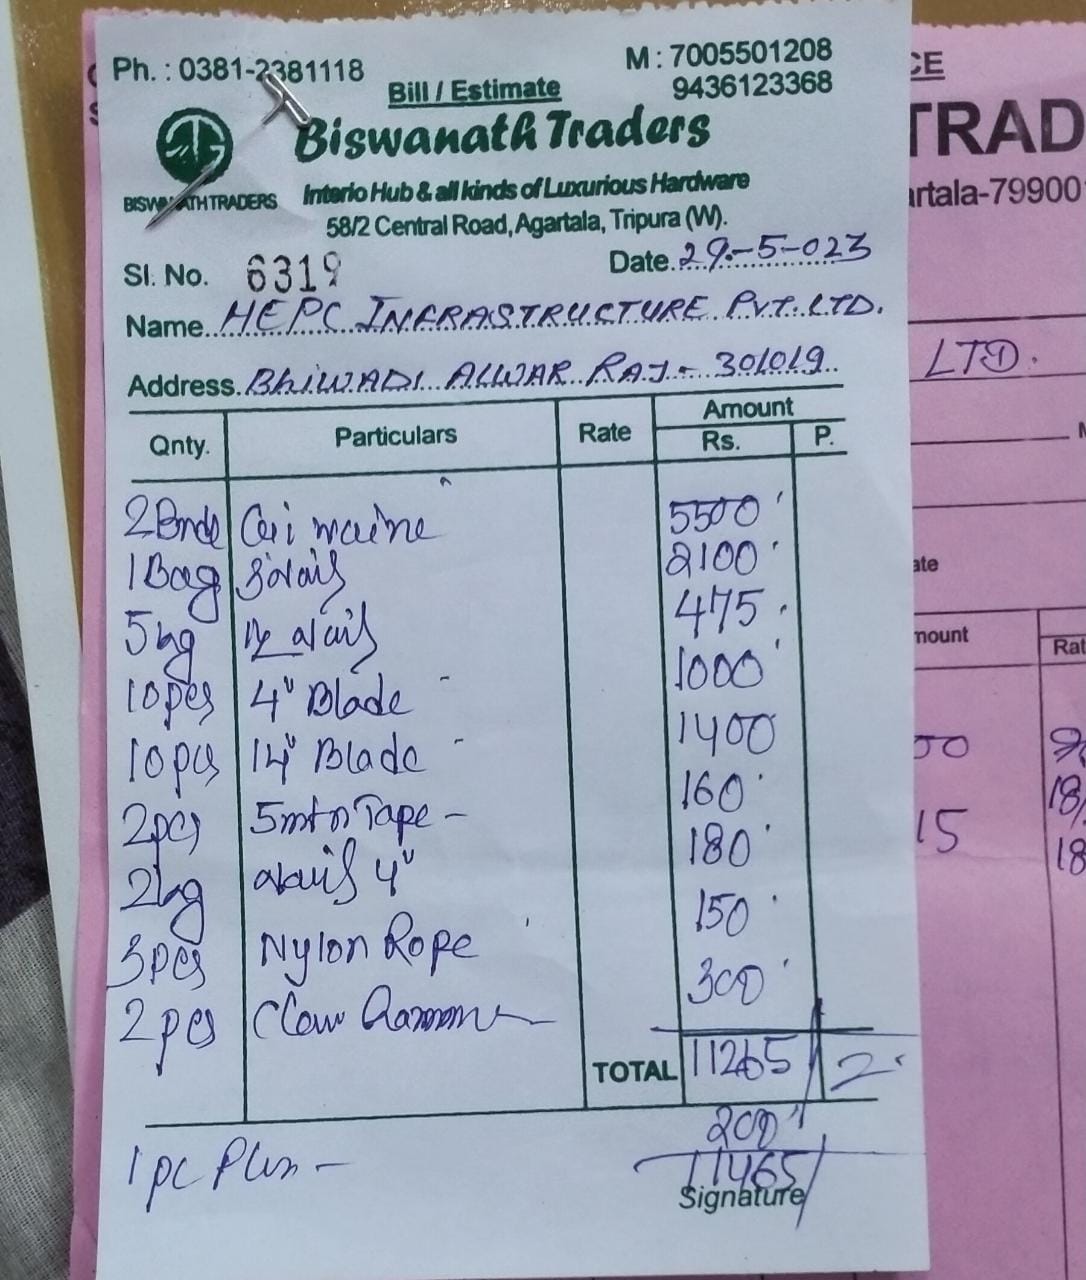 Ph. : 0381-2381118
M : 7005501208
9436123368
Bill / Estimate
Biswanath Traders
BISWANATH TRADERS
Interio Hub & all kinds of Luxurious Hardware
58/2 Central Road, Agartala, Tripura (W).
Sl. No. 6319
Date. 29-5-023
Name. HEPC INFRASTRUCTURE PVT. LTD.
Address. BHIWADI ALWAR RAJ - 301019
Qnty. Particulars Rate Amount
Rs. P.
2 5500
1 Bag 2100
5 kg 475
10 pcs 4" Blade 1000
10 pcs 14" Blade 1400
2 pcs 5 mtr Tape - 160
2 kg 4" 180
3 pcs Nylon Rope 150
2 pcs Claw 300
TOTAL 11265
1 pc - 200
11465
Signature
CE
TRAD
artala-79900
LTD.
ate
mount
Rat
00
15
18
18